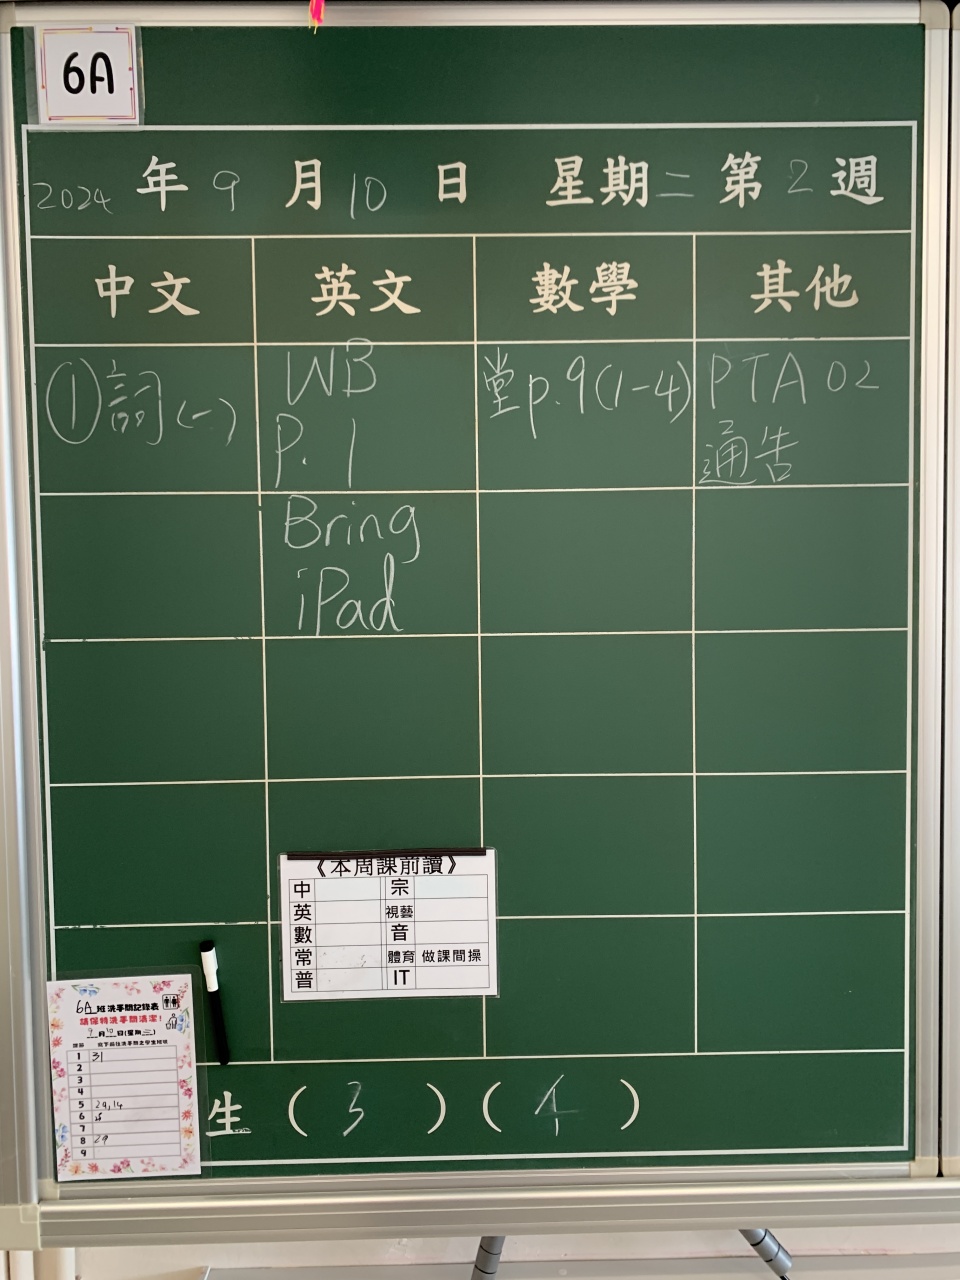 6A
2024 年 9 月 10 日 星期二 第 2 週
中文 英文 數學 其他
①詞(一)
WB
P. 1
堂p.9(1-4)
PTA 02
通告
Bring
iPad
《本周課前讀》
中 宗
英 視藝
數 音
常 體育 做課間操
普 IT
6A 班洗手間記錄表
請保持洗手間清潔!
9月10日(星期二)
1 31
2
3
4
5 29,14
6
7
8 29
9
生 ( 3 ) ( 4 )